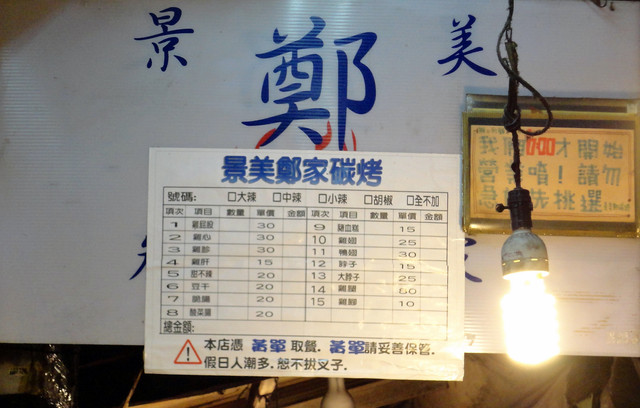 景 鄭 美
景美鄭家碳烤
號碼: □大辣 □中辣 □小辣 □胡椒 □全不加
項次 項目 數量 單價 金額 項次 項目 數量 單價 金額
1 雞屁股 30 9 雞血糕 15
2 雞心 30 10 雞翅 25
3 雞胗 30 11 鴨翅 30
4 雞肝 15 12 脖子 15
5 甜不辣 20 13 大脖子 25
6 豆干 20 14 雞腿 60
7 脆腸 20 15 雞腳 10
8 酸菜 20
總金額:
本店憑 黃單 取餐. 黃單請妥善保管.
假日人潮多. 恕不拔叉子.
我們 :00才開始
營 唷！請勿
先挑選